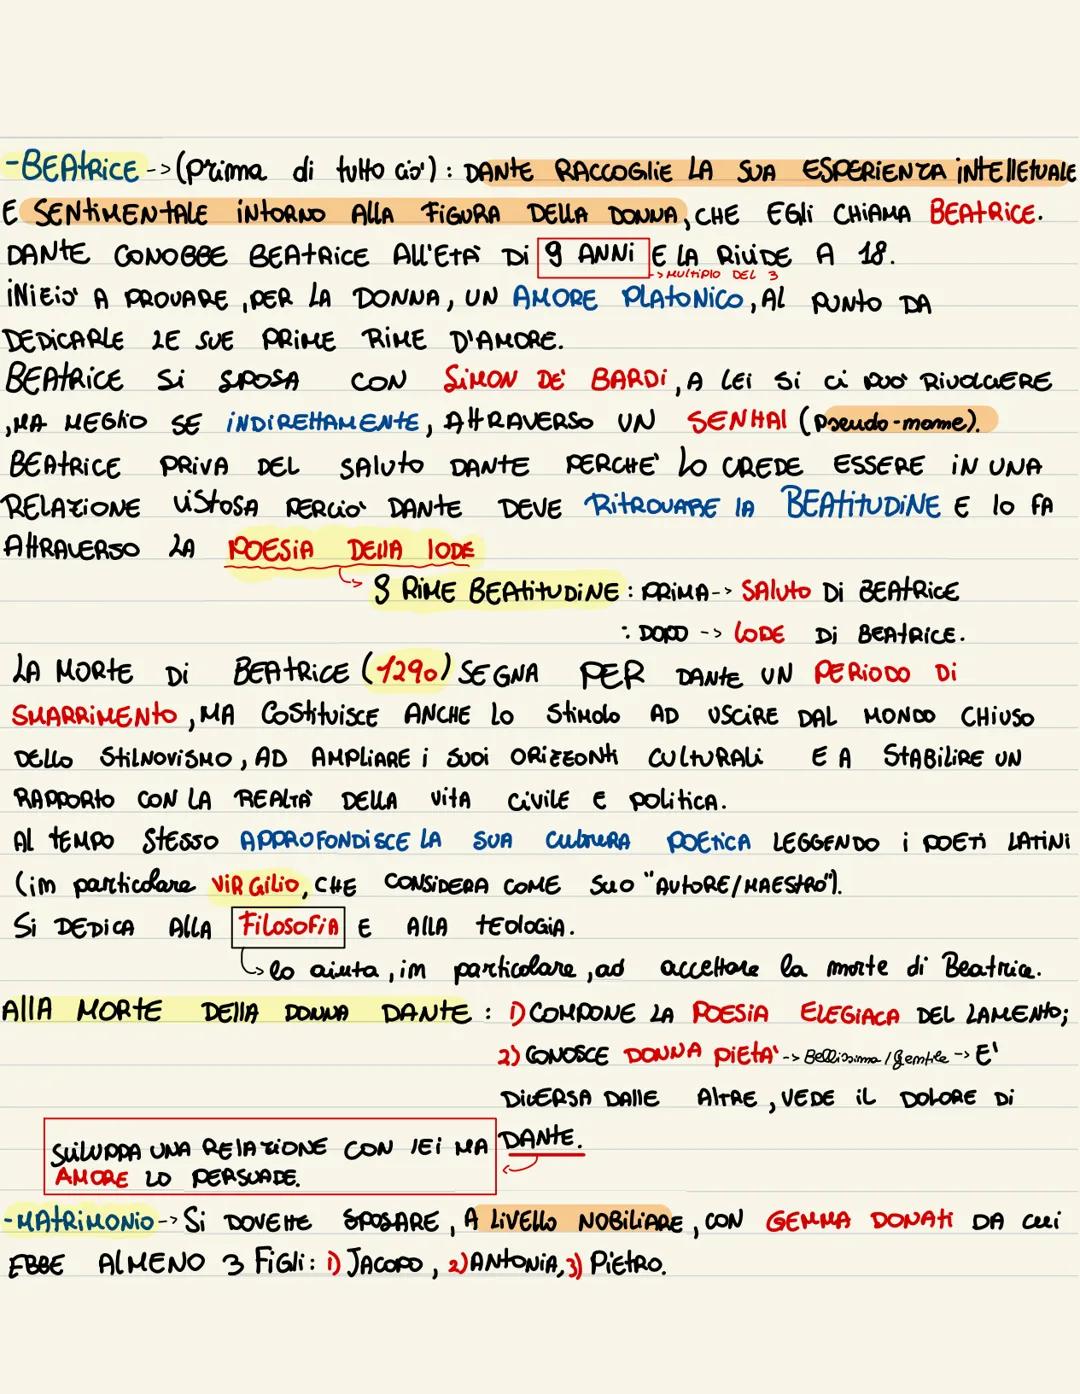 -BEATRICE -> (prima di tutto ciò): DANTE RACCOGLIE LA SUA ESPERIENZA INTELLETUALE
E SENTIMENTALE INTORNO ALLA FIGURA DELLA DONNA, CHE EGLI CHIAMA BEATRICE.
DANTE CONOBBE BEATRICE ALL'ETÀ DI 9 ANNI E LA RIVIDE A 18.
-> MULTIPLO DEL 3
INIZIO' A PROVARE, PER LA DONNA, UN AMORE PLATONICO, AL PUNTO DA
DEDICARLE LE SUE PRIME RIME D'AMORE.
BEATRICE SI SPOSA CON SIMON DE' BARDI, A LEI SI CI PUO' RIVOLGERE
, MA MEGLIO SE INDIRETTAMENTE, ATTRAVERSO UN SENHAL (pseudo-nome).
BEATRICE PRIVA DEL SALUTO DANTE PERCHE' LO CREDE ESSERE IN UNA
RELAZIONE VISTOSA PERCIO' DANTE DEVE RITROVARE LA BEATITUDINE E LO FA
ATTRAVERSO LA POESIA DELLA LODE
-> 9 RIME BEATITUDINE: PRIMA -> SALUTO DI BEATRICE
: DOPO -> LODE DI BEATRICE.
LA MORTE DI BEATRICE (1290) SEGNA PER DANTE UN PERIODO DI
SMARRIMENTO, MA COSTITUISCE ANCHE LO STIMOLO AD USCIRE DAL MONDO CHIUSO
DELLO STILNOVISMO, AD AMPLIARE I SUOI ORIZZONTI CULTURALI E A STABILIRE UN
RAPPORTO CON LA REALTA' DELLA VITA CIVILE E POLITICA.
AL TEMPO STESSO APPROFONDISCE LA SUA CULTURA POETICA LEGGENDO I POETI LATINI
(in particolare VIRGILIO, CHE CONSIDERA COME SUO "AUTORE/MAESTRO").
SI DEDICA ALLA FILOSOFIA E ALLA TEOLOGIA.
-> lo aiuta, in particolare, ad accettare la morte di Beatrice.
ALLA MORTE DELLA DONNA DANTE: 1) COMPONE LA POESIA ELEGIACA DEL LAMENTO;
2) CONOSCE DONNA PIETA' -> Bellissima/Gentile -> E'
DIVERSA DALLE ALTRE, VEDE IL DOLORE DI
DANTE.
SVILUPPA UNA RELAZIONE CON LEI MA
AMORE LO PERSUADE.
-MATRIMONIO -> SI DOVETTE SPOSARE, A LIVELLO NOBILIARE, CON GEMMA DONATI DA CUI
EBBE ALMENO 3 FIGLI: 1) JACOPO, 2) ANTONIA, 3) PIETRO.